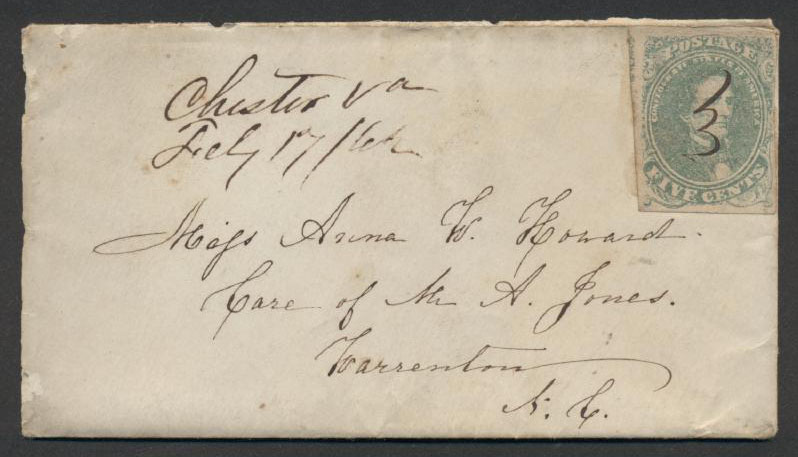 POSTAGE
CONFEDERATE STATES OF AMERICA
FIVE CENTS
Chester Va
Feby 17/62
Miss Anna W. Howard.
Care of Mr A. Jones.
Warrenton
N. C.